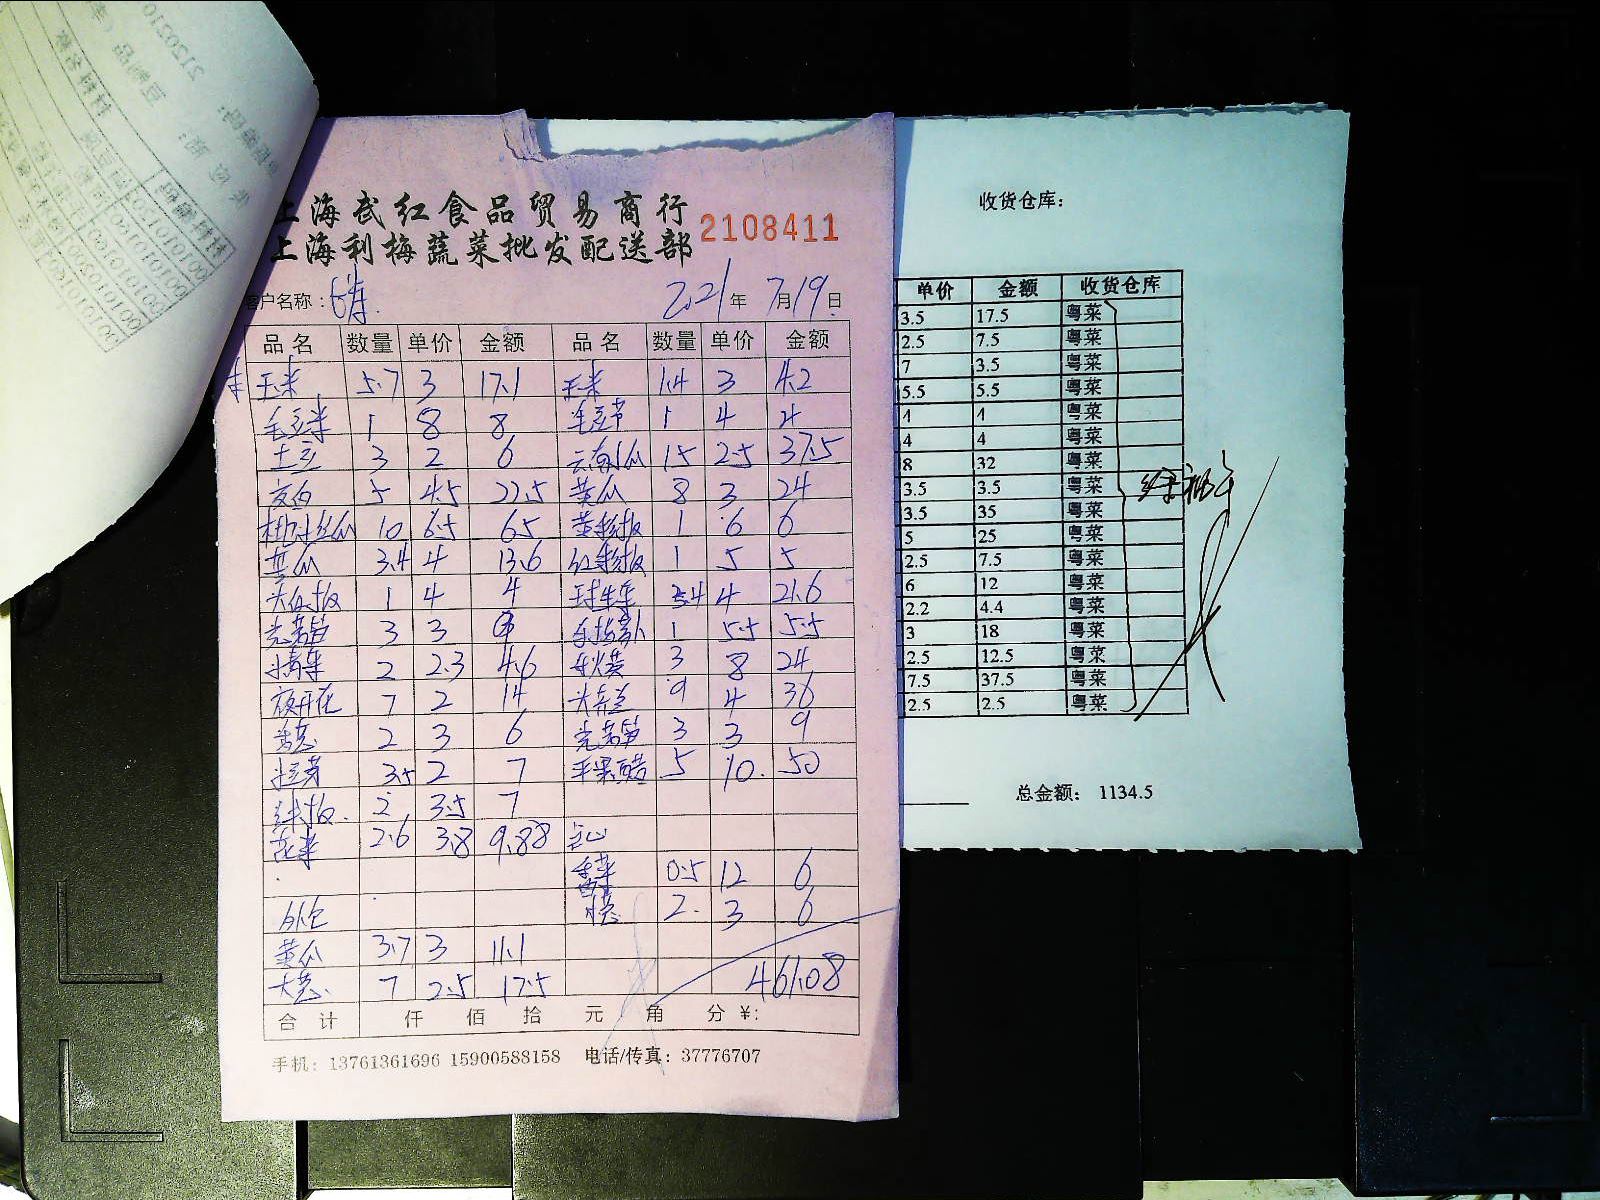 上海武红食品贸易商行
上海利梅蔬菜批发配送部
2108411
客户名称：
2021年7月19日
品名 数量 单价 金额 品名 数量 单价 金额
玉米 5.7 3 17.1 玉米 1.4 3 4.2
毛豆米 1 8 8 毛豆节 1 4 4
土豆 3 2 6 云南小瓜 15 2.5 37.5
茭白 5 4.5 22.5 黄瓜 8 3 24
丝瓜 10 6.5 65 黄彩椒 1 6 6
苦瓜 3.4 4 13.6 红彩椒 1 5 5
尖椒 1 4 4 5.4 4 21.6
光莴笋 3 3 9 手指萝卜 1 5.5 5.5
小青菜 2 2.3 4.6 3 8 24
夜开花 7 2 14 9 4 36
香葱 2 3 6 光莴笋 3 3 9
3.5 2 7 苹果醋 5 10. 50
红椒 2 3.5 7
花菜 2.6 3.8 9.88 点心
香菜 0.5 12 6
外仓 小葱 2. 3 6
黄瓜 3.7 3 11.1
大葱 7 2.5 17.5 461.08
合计 仟 佰 拾 元 角 分 ¥:
手机：13761361696 15900588158 电话/传真：37776707
收货仓库：
单价 金额 收货仓库
3.5 17.5 粤菜
2.5 7.5 粤菜
7 3.5 粤菜
5.5 5.5 粤菜
4 4 粤菜
4 4 粤菜
8 32 粤菜
3.5 3.5 粤菜
3.5 35 粤菜
5 25 粤菜
2.5 7.5 粤菜
6 12 粤菜
2.2 4.4 粤菜
3 18 粤菜
2.5 12.5 粤菜
7.5 37.5 粤菜
2.5 2.5 粤菜
总金额： 1134.5